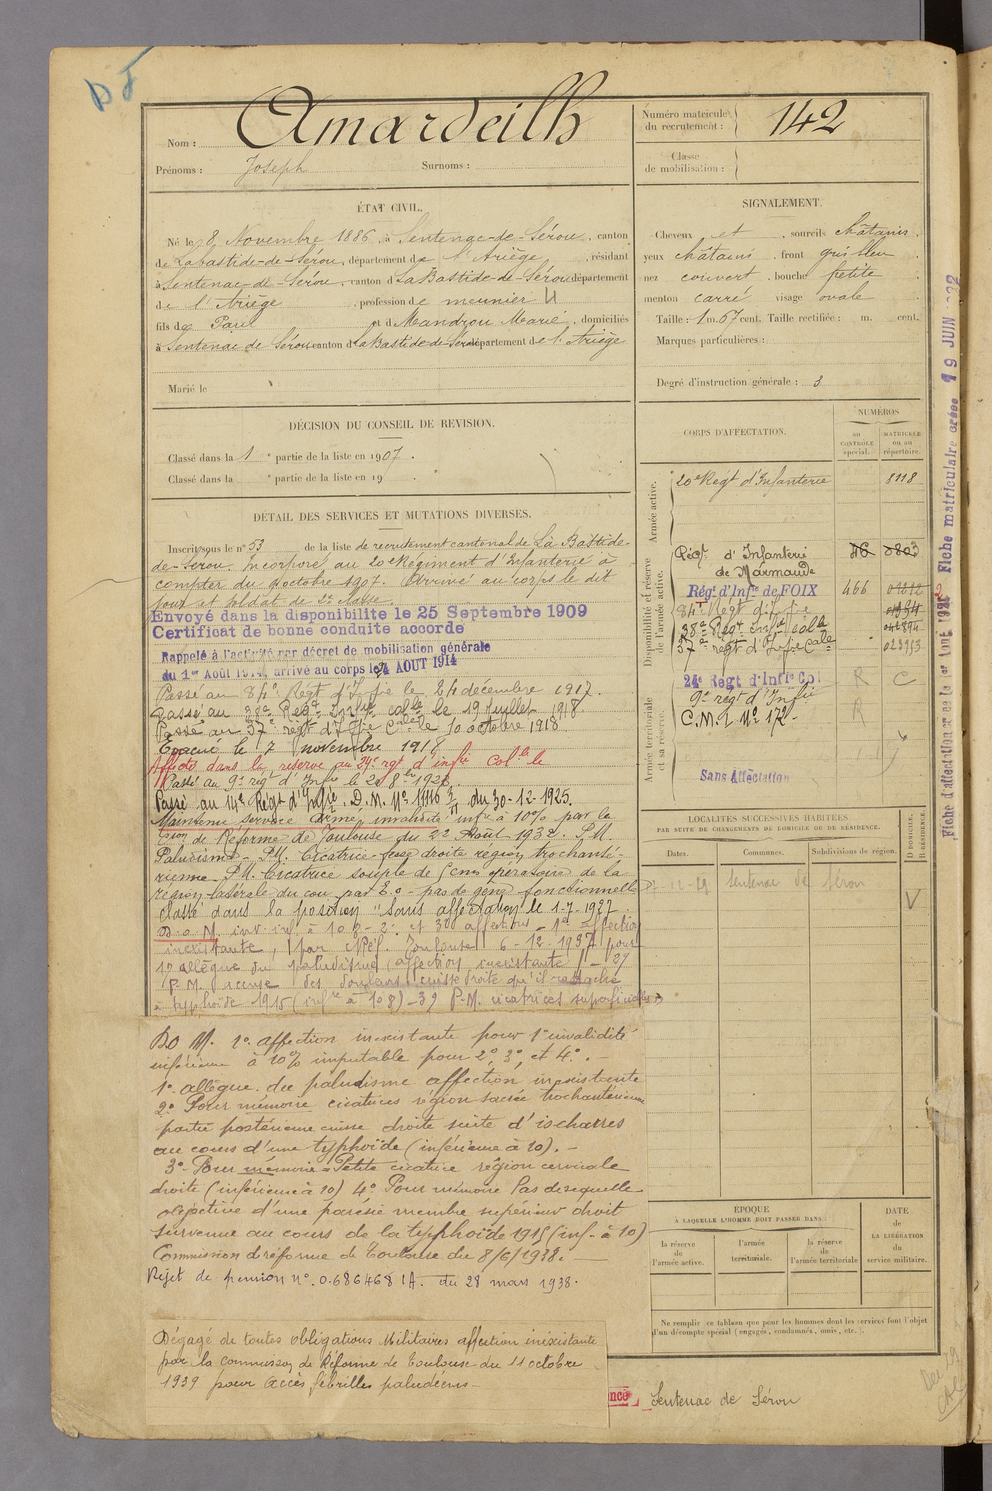 D F
Nom : Amardeilh
Prénoms : Joseph Surnoms :
Numéro matricule du recrutement : 142
Classe de mobilisation :
ÉTAT CIVIL.
Né le 8 Novembre 1886, à Sentenac-de-Sérou, canton
de Labastide-de-Sérou, département de l'Ariège, résidant
à Sentenac-de-Sérou, canton d LaBastide-de-Sérou département
de l'Ariège, profession de meunier
fils de Paul et d Mandrou Marie, domiciliés
à Sentenac de Sérou canton d LaBastide-de-Sérou département de l'Ariège
Marié le
SIGNALEMENT.
Cheveux et sourcils châtains
yeux châtains, front gris bleu
nez couvert, bouche petite
menton carré visage ovale
Taille : 1 m. 67 cent. Taille rectifiée : m. cent.
Marques particulières :
Degré d'instruction générale : 3
DÉCISION DU CONSEIL DE REVISION.
Classé dans la 1e partie de la liste en 1907.
Classé dans la e partie de la liste en 19 .
DÉTAIL DES SERVICES ET MUTATIONS DIVERSES.
Inscrit sous le n° 53 de la liste de recrutement cantonal de La Bastide-
de-Sérou. Incorporé au 20e Régiment d'Infanterie à
compter du 9 octobre 1907. Arrivé au corps le dit
jour et soldat de 2e classe.
Envoyé dans la disponibilite le 25 Septembre 1909
Certificat de bonne conduite accorde
Rappelé à l'activité par décret de mobilisation générale
du 1er Août 1914, arrivé au corps le 4 AOUT 1914
Passé au 84e Régt d'Infie le 24 décembre 1917.
Passé au 38e Régt Infie colle le 19 Juillet 1918
Passé au 37e regt d'Infie Cale le 10 octobre 1918
Évacué le 7 novembre 1918
Affecté dans la réserve au 24e rgt d'infie Colle le
Passé au 9e regt d'Infie le
Passé au 14e Régt d'Infie. D.M. N° 11116 du 30-12-1925.
Maintenu service armé invalidité infre à 10% par la
Cion de Réforme de Toulouse du 22 Août 1932. P.M.
Paludisme - P.M. Cicatrice fesse droite région trochanté-
rienne. P.M. Cicatrice souple de opératoire de la
région latérale du cou par E.o - pas de gêne fonctionnelle
classé dans la position "sans affectation" le 1-7-1927
inexistante, par Toulouse 6-12-1937 pour
1° allègue du paludisme (affection inexistante)
P.M. accuse des douleurs cuisse droite qu'il rattache
à typhoïde 1915 (infre à 10%) - 3° P.M. cicatrices superficielles
1° affection inexistante pour 1° invalidité
inférieure à 10% imputable pour 2°, 3°, et 4°. -
1° allègue du paludisme affection inexistante
2° Pour mémoire cicatrices région sacrée trochantérienne
partie postérieure cuisse droite suite d'ischarres
au cours d'une typhoïde (inférieure à 10). -
3° Pour mémoire - Petite cicatrice région cervicale
droite (inférieure à 10) 4° Pour mémoire Pas de sequelle
objective d'une parésie membre supérieur droit
survenue au cours de la typhoïde 1915 (inf. à 10)
Commission de réforme de Toulouse du 8/6/1938.
Rejet de pension n°. 0.686468 IA. du 28 mars 1938.
Dégagé de toutes obligations Militaires affection inéxistante
par la commission de Réforme de Toulouse du 11 octobre
1939 pour accès fébrilles paludéens -
CORPS D'AFFECTATION.
NUMÉROS
au CONTRÔLE spécial.
MATRICULE ou au répertoire.
Armée active.
20e Régt d'Infanterie 8118
Disponibilité et réserve de l'armée active.
Régt d'Infanterie 46
de Marmande
Régt d'Infie de FOIX 466
84e Régt d'Infie
38e Régt Infie colle
37e regt d'Infie Cale 023953
Armée territoriale et sa réserve.
24e Regt d'Infie Col R C
9e regt d'Infie R
C.M.I. N° 172 -
Sans Affectation
LOCALITÉS SUCCESSIVES HABITÉES
PAR SUITE DE CHANGEMENTS DE DOMICILE OU DE RÉSIDENCE.
Dates. Communes. Subdivisions de région. D DOMICILE. R RÉSIDENCE.
Sentenac de Sérou
V
ÉPOQUE
À LAQUELLE L'HOMME DOIT PASSER DANS :
la réserve de l'armée active.
l'armée territoriale.
la réserve de l'armée territoriale.
DATE de LA LIBÉRATION du service militaire.
Ne remplir ce tableau que pour les hommes dont les services font l'objet
d'un décompte spécial (engagés, condamnés, omis, etc.).
Sentenac de Sérou
Fiche matriculaire créée 19 JUIN